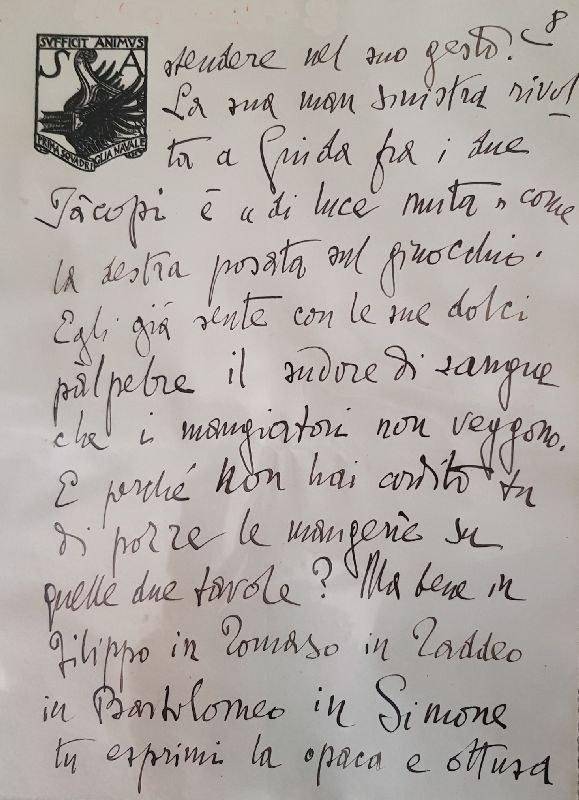 8
SVFFICIT ANIMVS
S A
PRIMA SQVADRIGLIA NAVALE
stendere nel suo gesto.
La sua man sinistra rivol
ta a Giuda fra i due
Jàcopi è « di luce muta » come
la destra posata sul ginocchio.
Egli già sente con le sue dolci
pàlpebre il sudore di sangue
che i mangiatori non veggono.
E perché non hai ardito tu
di porre le mangerie su
quelle due tavole? Ma bene in
Filippo in Tomaso in Taddeo
in Bartolomeo in Simone
tu esprimi la opaca e ottusa